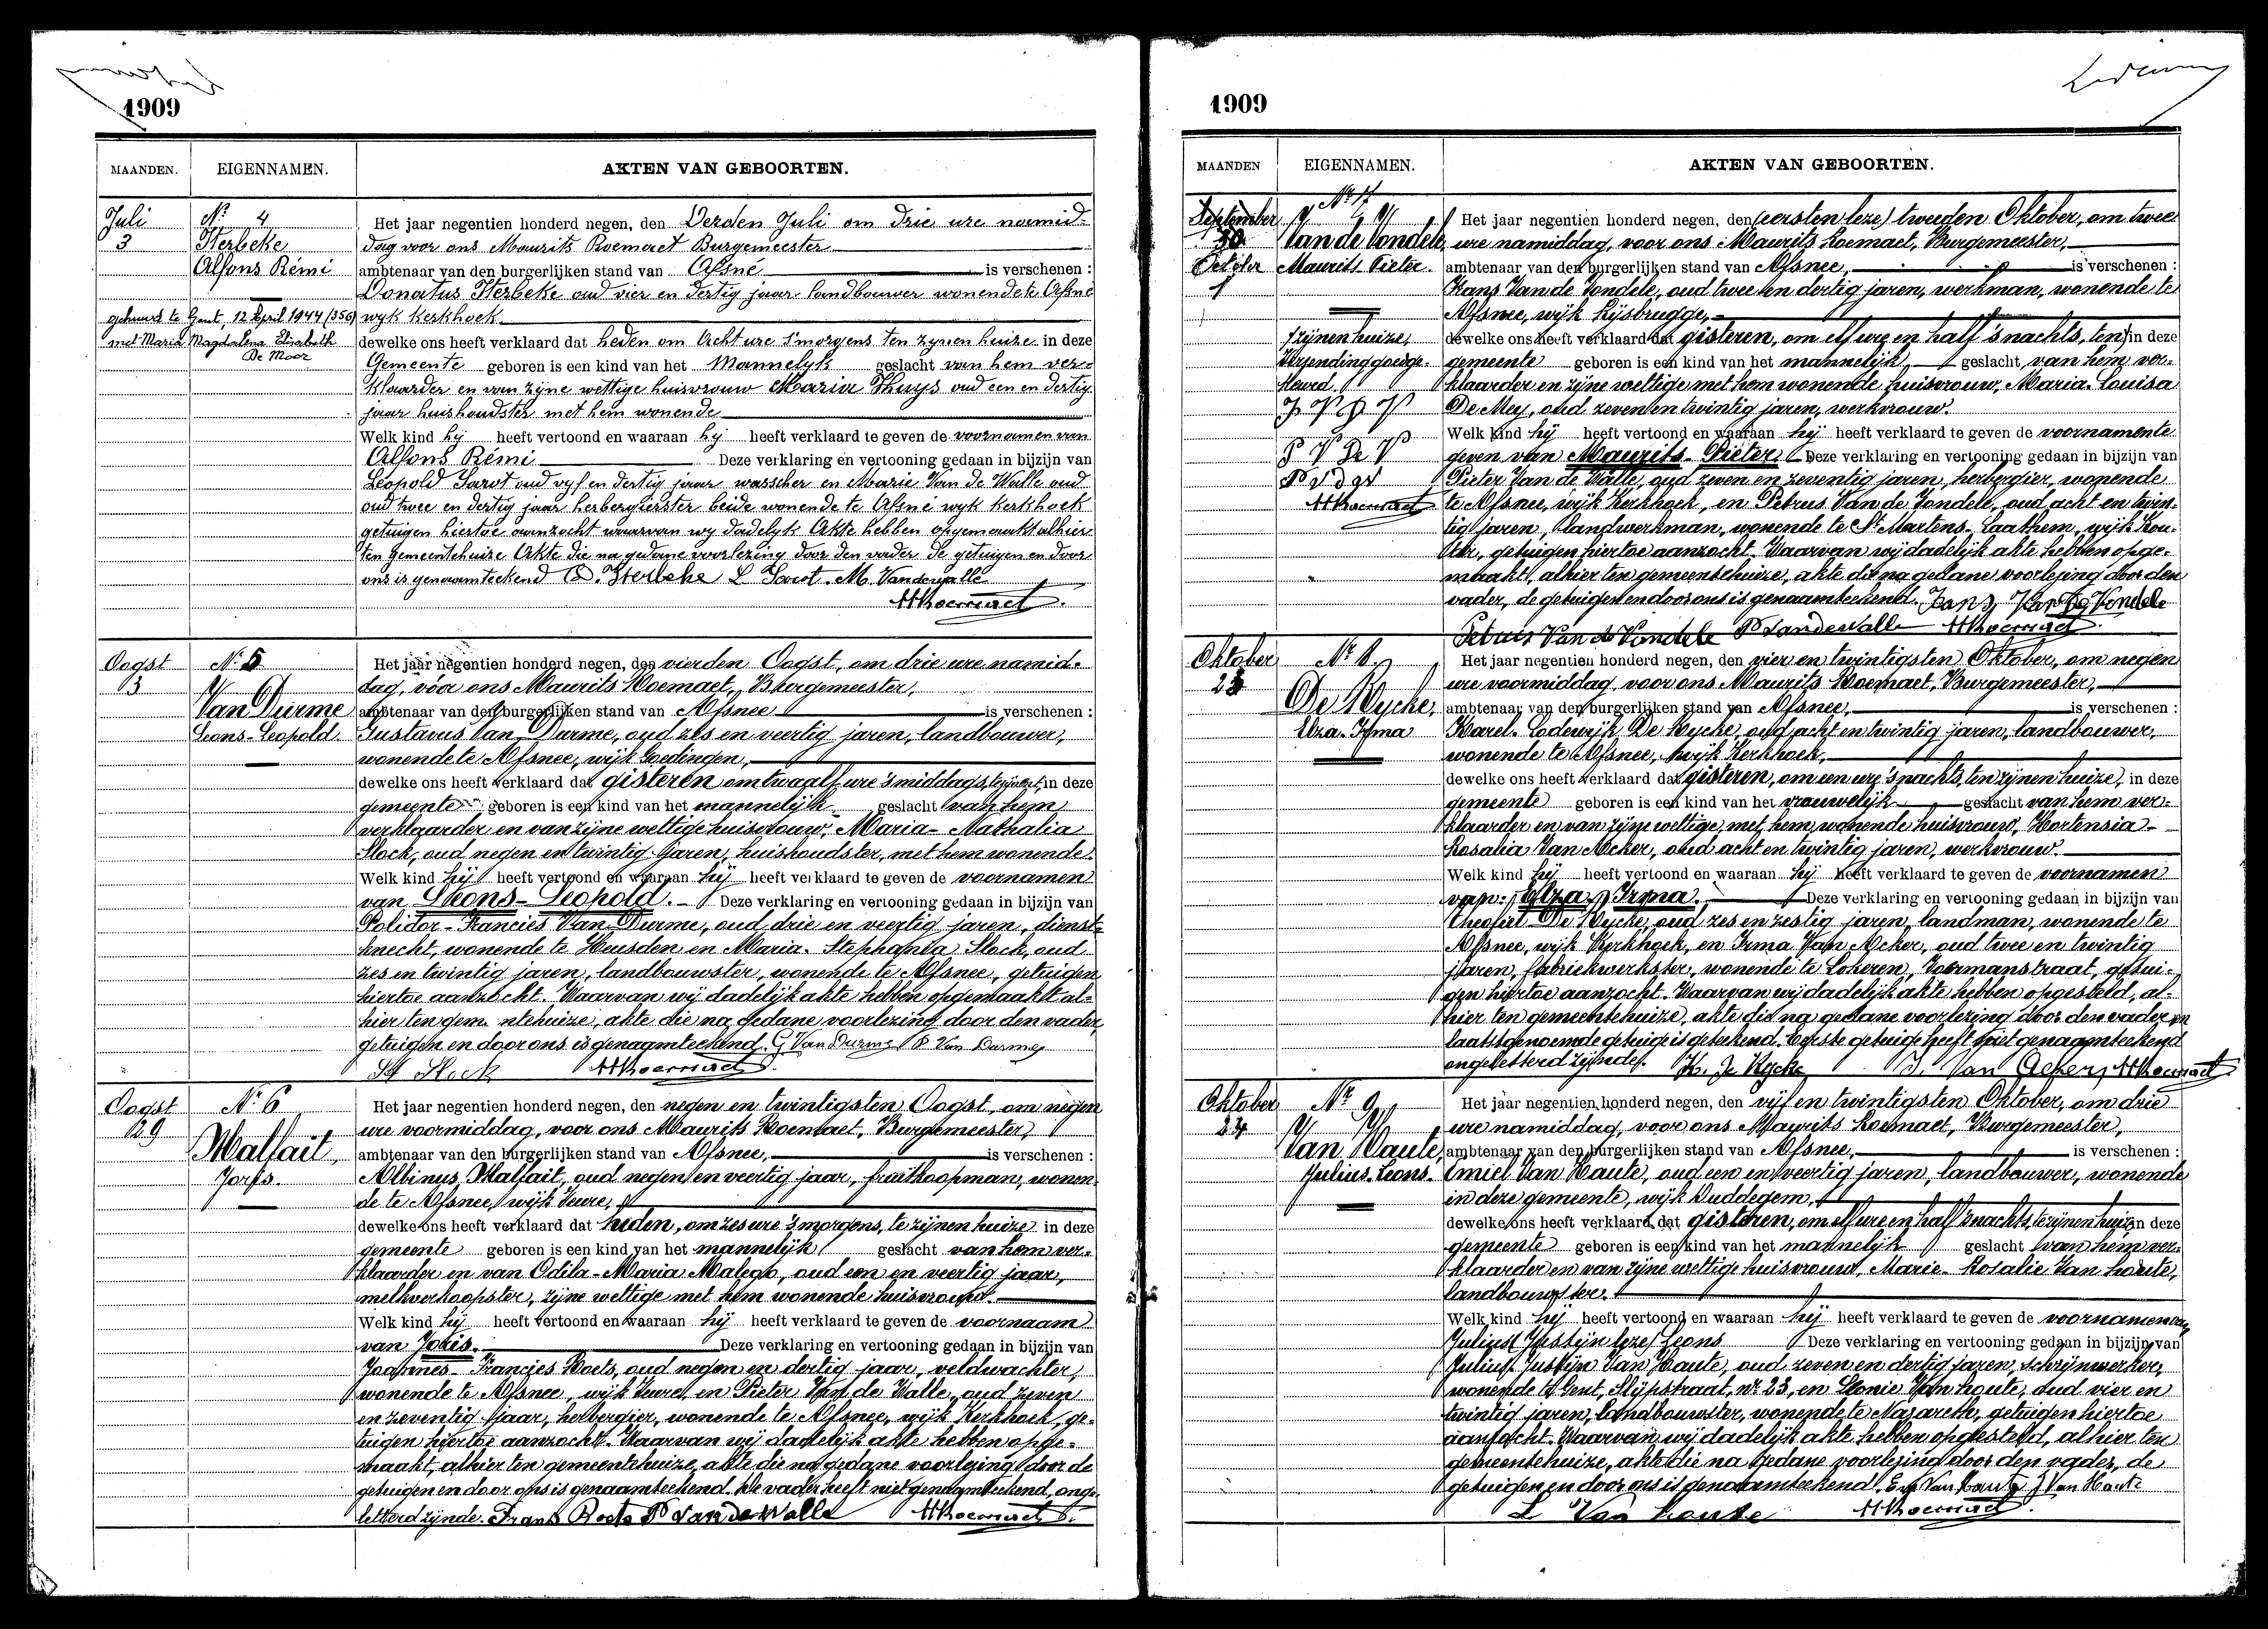 1909
MAANDEN. EIGENNAMEN. AKTEN VAN GEBOORTEN.
Juli
3
N.r 4
Sterbeke
Alfons Rémi
gehuwd te Gent, 12 April 1944 (356)
met Maria Magdalena Elisabeth
De Moor
Het jaar negentien honderd negen, den Derden Juli om drie ure namid-
dag voor ons Maurits Roemaet Burgemeester
ambtenaar van den burgerlijken stand van Afsné is verschenen :
Donatus Sterbeke oud vier en dertig jaar landbouwer wonende te Afsné
wyk Kerkhoek
dewelke ons heeft verklaard dat heden om Acht ure s'morgens ten zynen huize in deze
Gemeente geboren is een kind van het Mannelyk geslacht van hem ver-
klaarder en van zyne wettige huisvrouw Maria Thuys oud een en dertig
jaar huishoudster met hem wonende
Welk kind hy heeft vertoond en waaraan hy heeft verklaard te geven de voornamen van
Alfons Rémi Deze verklaring en vertooning gedaan in bijzijn van
Leopold Sarot oud vyf en dertig jaar wasscher en Marie Van de Walle oud
oud twee en dertig jaar herbergierster beide wonende te Afsné wyk Kerkhoek
getuigen hiertoe aanzocht waarvan wy dadelyk Akte hebben opgemaakt alhier
ten Gemeentehuize Akte die na gedane voorlezing door den vader de getuigen en door
ons is genaamteekend D. Sterbeke L Sarot M. Vandewalle
MRoemaet
Oogst
3
N.r 5
Van Durme
Leons-Leopold.
Het jaar negentien honderd negen, den vierden Oogst, om drie ure namid-
dag, vóor ons Maurits Roemaet, Burgemeester,
ambtenaar van den burgerlijken stand van Afsnee is verschenen :
Gustavus Van Durme, oud zes en veertig jaren, landbouwer,
wonende te Afsnee, wijk Goedingen,
dewelke ons heeft verklaard dat gisteren om twaalf ure 's middags, in deze
gemeente geboren is een kind van het mannelijk geslacht van hem
verklaarder en van zijne wettige huisvrouw, Maria-Nathalia
Slock, oud negen en twintig jaren, huishoudster, met hem wonende.
Welk kind hij heeft vertoond en waaraan hij heeft verklaard te geven de voornamen
van Leons-Leopold. Deze verklaring en vertooning gedaan in bijzijn van
Polidor-Francies Van Durme, oud drie en veertig jaren, dienst-
knecht, wonende te Heusden en Maria-Stephania Slock, oud
zes en twintig jaren, landbouwster, wonende te Afsnee, getuigen
hiertoe aanzocht. Waarvan wij dadelijk akte hebben opgemaakt al-
hier ten gem. ntehuize, akte die na gedane voorlezing door den vader,
getuigen en door ons is genaamteekend. G Van Durme P Van Durme
St Slock MRoemaet
Oogst
29
N.r 6
Malfait,
Joris.
Het jaar negentien honderd negen, den negen en twintigsten Oogst, om negen
ure voormiddag, voor ons Maurits Roemaet, Burgemeester,
ambtenaar van den burgerlijken stand van Afsnee, is verschenen :
Albinus Malfait, oud negen en veertig jaar, fruitkoopman, wonen-
de te Afsnee, wijk Veure,
dewelke ons heeft verklaard dat heden, om zes ure 's morgens, te zijnen huize in deze
gemeente geboren is een kind van het mannelijk geslacht van hem ver-
klaarder en van Odila-Maria Malego, oud een en veertig jaar,
melkverkoopster, zijne wettige met hem wonende huisvrouw.
Welk kind hij heeft vertoond en waaraan hij heeft verklaard te geven de voornaam
van Joris. Deze verklaring en vertooning gedaan in bijzijn van
Joannes-Francies Roets, oud negen en dertig jaar, veldwachter,
wonende te Afsnee, wijk Veure, en Pieter Van de Walle, oud zeven
en zeventig jaar, herbergier, wonende te Afsnee, wijk Kerkhoek, ge-
tuigen hiertoe aanzocht. Waarvan wij dadelijk akte hebben opge-
maakt, alhier ten gemeentehuize, akte die na gedane voorlezing door de
getuigen en door ons is genaamteekend. De vader heeft niet genaamteekend, onge-
letterd zijnde. Frans Roets P Van de Walle MRoemaet
1909
MAANDEN EIGENNAMEN. AKTEN VAN GEBOORTEN.
September
30
October
1
N.r 7
Van de Vondele,
Maurits Pieter.
tzijnen huize,
Verzending goedge-
keurd.
J V D V
P V De V
P v d w
MRoemaet
Het jaar negentien honderd negen, den (eersten leze) tweeden Oktober, om twee
ure namiddag, voor ons Maurits Roemaet, Burgemeester,
ambtenaar van den burgerlijken stand van Afsnee, is verschenen :
Frans Van de Vondele, oud twee en dertig jaren, werkman, wonende te
Afsnee, wijk Rijsbrugge,
dewelke ons heeft verklaard dat gisteren, om elf ure en half 's nachts, ten in deze
gemeente geboren is een kind van het mannelijk geslacht van hem ver-
klaarder en zijne wettige met hem wonende huisvrouw, Maria-Louisa
De Mey, oud zeven en twintig jaren, werkvrouw.
Welk kind hij heeft vertoond en waaraan hij heeft verklaard te geven de voornamente
geven van Maurits-Pieter. Deze verklaring en vertooning gedaan in bijzijn van
Pieter Van de Walle, oud zeven en zeventig jaren, herbergier, wonende
te Afsnee, wijk Kerkhoek, en Petrus Van de Vondele, oud acht en twin-
tig jaren, landwerkman, wonende te St Martens-Laathem, wijk Kou-
ter, getuigen hiertoe aanzocht. Waarvan wij dadelijk akte hebben opge-
maakt, alhier ten gemeentehuize, akte die na gedane voorlezing door den
vader, de getuigen en door ons is genaamteekend. Fans Van De Vondele
Petrus Van de Vondele P Vandewalle MRoemaet
Oktober
23
N.r 8.
De Rycke,
Elza-Irma
Het jaar negentien honderd negen, den vier en twintigsten Oktober, om negen
ure voormiddag, voor ons Maurits Roemaet, Burgemeester,
ambtenaar van den burgerlijken stand van Afsnee, is verschenen :
Karel-Lodewijk De Rycke, oud acht en twintig jaren, landbouwer,
wonende te Afsnee, wijk Kerkhoek,
dewelke ons heeft verklaard dat gisteren, om een ure 's nachts, ten zijnen huize, in deze
gemeente geboren is een kind van het vrouwelijk geslacht van hem ver-
klaarder en van zijne wettige, met hem wonende huisvrouw, Hortensia-
Rosalia Van Acker, oud acht en twintig jaren, werkvrouw.
Welk kind hij heeft vertoond en waaraan hij heeft verklaard te geven de voornamen
van: Elza, Irma. Deze verklaring en vertooning gedaan in bijzijn van
Theofiel De Rycke, oud zes en zestig jaren, landman, wonende te
Afsnee, wijk Kerkhoek, en Irma Van Acker, oud twee en twintig
jaren, fabriekwerkster, wonende te Lokeren, Voermanstraat, getui-
gen hiertoe aanzocht. Waarvan wij dadelijk akte hebben opgesteld, al-
hier ten gemeentehuize, akte die na gedane voorlezing door den vader en
laatstgenoemde getuige is geteekend. Eerste getuige heeft niet genaamteekend
ongeletterd zijnde. K. De Rycke I. Van Acker MRoemaet
Oktober
24
N.r 9
Van Haute,
Julius-Leons.
Het jaar negentien honderd negen, den vijf en twintigsten Oktober, om drie
ure namiddag, voor ons Maurits Roemaet, Burgemeester,
ambtenaar van den burgerlijken stand van Afsnee, is verschenen :
Emiel Van Haute, oud een en veertig jaren, landbouwer, wonende
in deze gemeente, wijk Duddegem,
dewelke ons heeft verklaard dat gisteren, om elf ure en half 's nachts, te zijnen huize in deze
gemeente geboren is een kind van het mannelijk geslacht van hem ver-
klaarder en van zijne wettige huisvrouw, Marie-Rosalie Van houte,
landbouwster.
Welk kind hij heeft vertoond en waaraan hij heeft verklaard te geven de voornamen van
Julius (Justijn leze) Leons Deze verklaring en vertooning gedaan in bijzijn van
Julius Justijn Van Haute, oud zeven en dertig jaren, schrijnwerker,
wonende te Gent, Slijpstraat, nr 23, en Leonie Van houte, oud vier en
twintig jaren, landbouwster, wonende te Nazareth, getuigen hiertoe
aanzocht. Waarvan wij dadelijk akte hebben opgesteld, alhier ten
gemeentehuize, akte die na gedane voorlezing door den vader, de
getuigen en door ons is genaamteekend. Em Van Haute J Van Haute
L Van houte MRoemaet